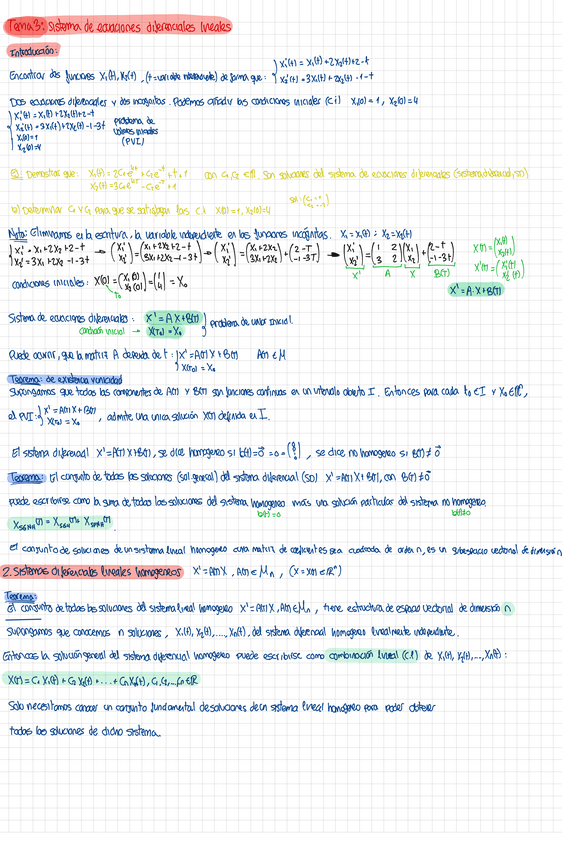 Tema 3: Sistema de ecuaciones diferenciales lineales
Introducción:
Encontrar dos funciones X₁(t), X₂(t), (t = variable independiente) de forma que: { X₁'(t) = X₁(t) + 2X₂(t) + 2 - t
X₂'(t) = 3X₁(t) + 2X₂(t) - 1 - t
Dos ecuaciones diferenciales y dos incognitas. Podemos añadir las condiciones iniciales (c i) X₁(0) = 1, X₂(0) = 4
{ X₁'(t) = X₁(t) + 2X₂(t) + 2 - t
X₂'(t) = 3X₁(t) + 2X₂(t) - 1 - 3t
X₁(0) = 1
X₂(0) = 4
problema de valores iniciales (PVI)
Demostrar que: X₁(t) = 2C₁e⁴ᵗ + C₂e⁻ᵗ + t - 1 con C₁, C₂ ∈ ℝ. Son soluciones del sistema de ecuaciones diferenciales (sistema diferencial, SD)
X₂(t) = 3C₁e⁴ᵗ - C₂e⁻ᵗ + 1
b) Determinar C₁ y C₂ para que se satisfagan las C.I X₁(0) = 1, X₂(0) = 4
Nota: Eliminamos en la escritura, la variable independiente en las funciones incógnitas. X₁ = X₁(t) ; X₂ = X₂(t)
{ X₁' = X₁ + 2X₂ + 2 - t → (X₁') = (X₁ + 2X₂ + 2 - t) → (X₁') = (X₁ + 2X₂) + (2 - T) → (X₁') = (1 2)(X₁) + (2 - t) X(t) = (X₁(t))
X₂' = 3X₁ + 2X₂ - 1 - 3t (X₂') (3X₁ + 2X₂ - 1 - 3t) (X₂') (3X₁ + 2X₂) (-1 - 3T) (X₂') (3 2)(X₂) (-1 - 3t) (X₂(t))
X' A X B(t) X'(t) = (X₁'(t))
(X₂'(t))
condiciones iniciales: X(0) = (X₁(0)) = (1) = X₀
(X₂(0)) (4)
T₀
X' = A·X + B(t)
Sistema de ecuaciones diferenciales: X' = A X + B(t) } problema de valor inicial.
condición inicial → X(T₀) = X₀
Puede ocurrir, que la matriz A dependa de t: { X' = A(t) X + B(t) A(t) ∈ M
X(T₀) = X₀
Teorema: de existencia y unicidad
Supongamos que todas las componentes de A(t) y B(t) son funciones continuas en un intervalo abierto I. Entonces para cada t₀ ∈ I y X₀ ∈ ℝⁿ,
el PVI: { X' = A(t) X + B(t)
X(T₀) = X₀ , admite una unica solución X(t) definida en I.
El sistema diferencial X' = A(t) X + B(t), se dice homogeneo si b(t) = 0⃗ , se dice no homogeneo si B(t) ≠ 0⃗
Teorema: El conjunto de todas las soluciones (sol. general) del sistema diferencial (SD) X' = A(t) X + B(t), con B(t) ≠ 0⃗
puede escribirse como la suma de todas las soluciones del sistema homogeneo más una solución particular del sistema no homogeneo.
b(t) = 0 b(t) ≠ 0
el conjunto de soluciones de un sistema lineal homogeneo cuya matriz de coeficientes sea cuadrada de orden n, es un subespacio vectorial de dimensión n
2. Sistemas Diferenciales lineales homogeneos X' = A(t) X, A(t) ∈ Mₙ, (X = X(t) ∈ ℝⁿ)
Teorema:
el conjunto de todas las soluciones del sistema lineal homogeneo X' = A(t) X, A(t) ∈ Mₙ, tiene estructura de espacio vectorial de dimensión n
Supongamos que conocemos n soluciones, X₁(t), X₂(t), ..., Xₙ(t), del sistema diferencial homogeneo linealmente independiente.
Entonces la solución general del sistema diferencial homogeneo puede escribirse como combinación lineal (C.l) de X₁(t), X₂(t), ..., Xₙ(t):
X(t) = C₁ X₁(t) + C₂ X₂(t) + ... + Cₙ Xₙ(t), C₁, C₂, ..., Cₙ ∈ ℝ
Solo necesitamos conocer un conjunto fundamental de soluciones de un sistema lineal homogéneo para poder obtener
todas las soluciones de dicho sistema.